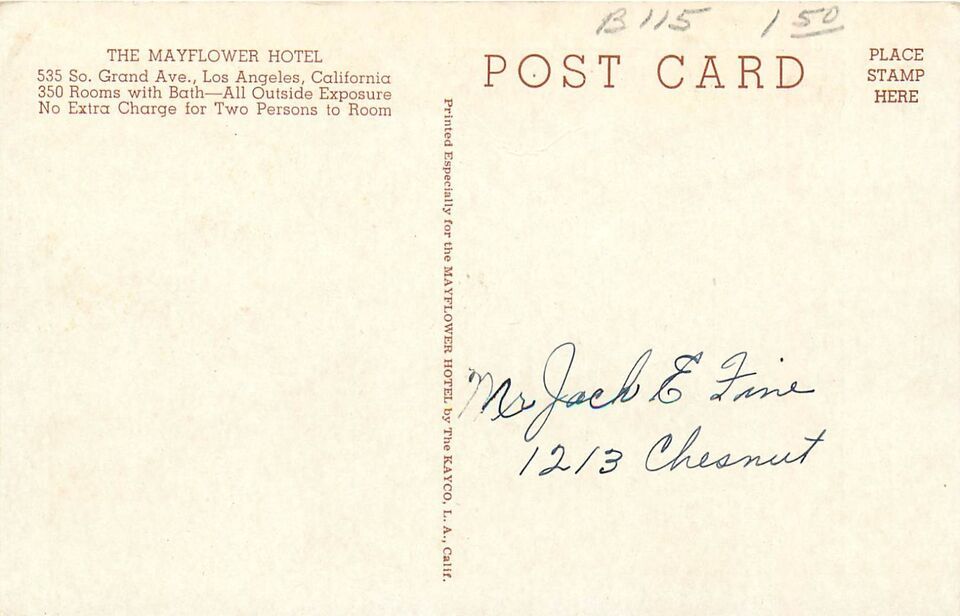 B 115 1 50
THE MAYFLOWER HOTEL
535 So. Grand Ave., Los Angeles, California
350 Rooms with Bath—All Outside Exposure
No Extra Charge for Two Persons to Room
POST CARD
PLACE
STAMP
HERE
Printed Especially for the MAYFLOWER HOTEL by The KAYCO, L. A., Calif.
Mr Jack E Fine
1213 Chesnut